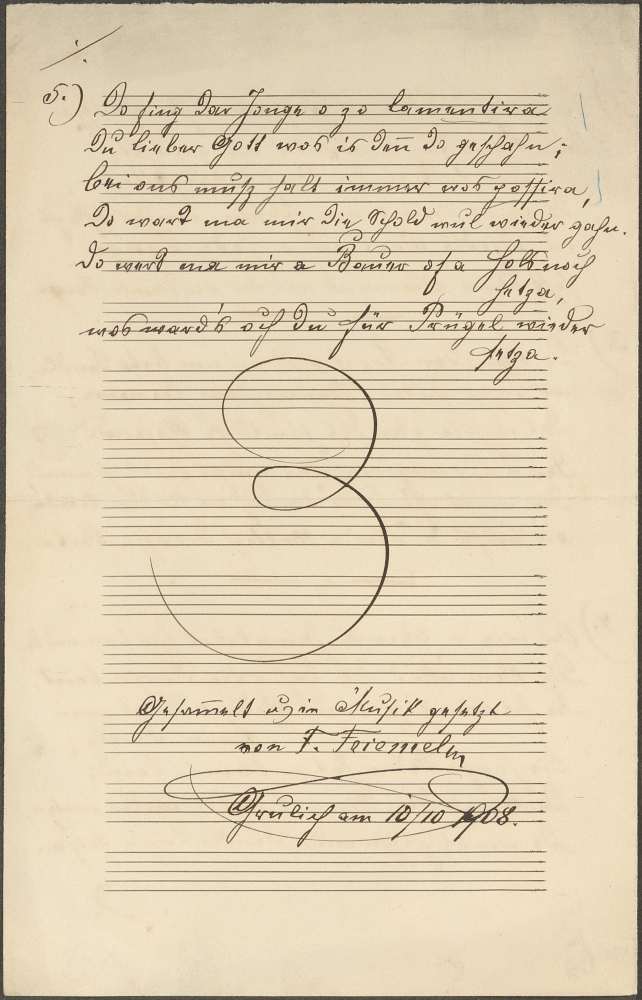 5.) Do fing dar Jonge o zo lamentira
Du lieber Gott wos is den̄ do geschahn;
bei ons muß halt immer wos possira,
Do ward ma mir die Schold wul wieder gahn.
Do werd ma mir a Bauer of a Hols noch
hetza,
wos ward's och du für Prügel wieder
setza.
Gesam̄elt u. in Musik gesetzt
von F.
Grulich am 10/10 1908.